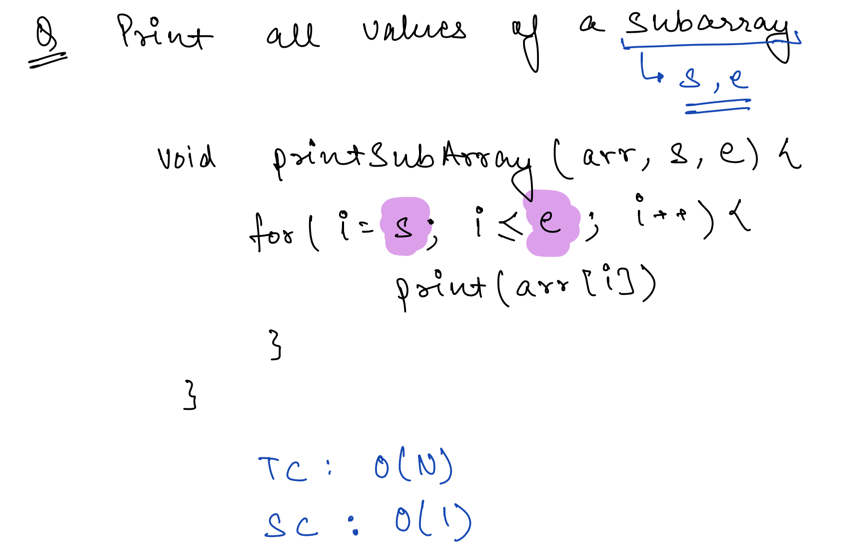 Q Print all values of a subarray.
↳ s, e
void printSubArray (arr, s, e) {
for( i = s; i ≤ e; i++) {
print(arr[i])
}
}
TC : O(N)
SC : O(1)